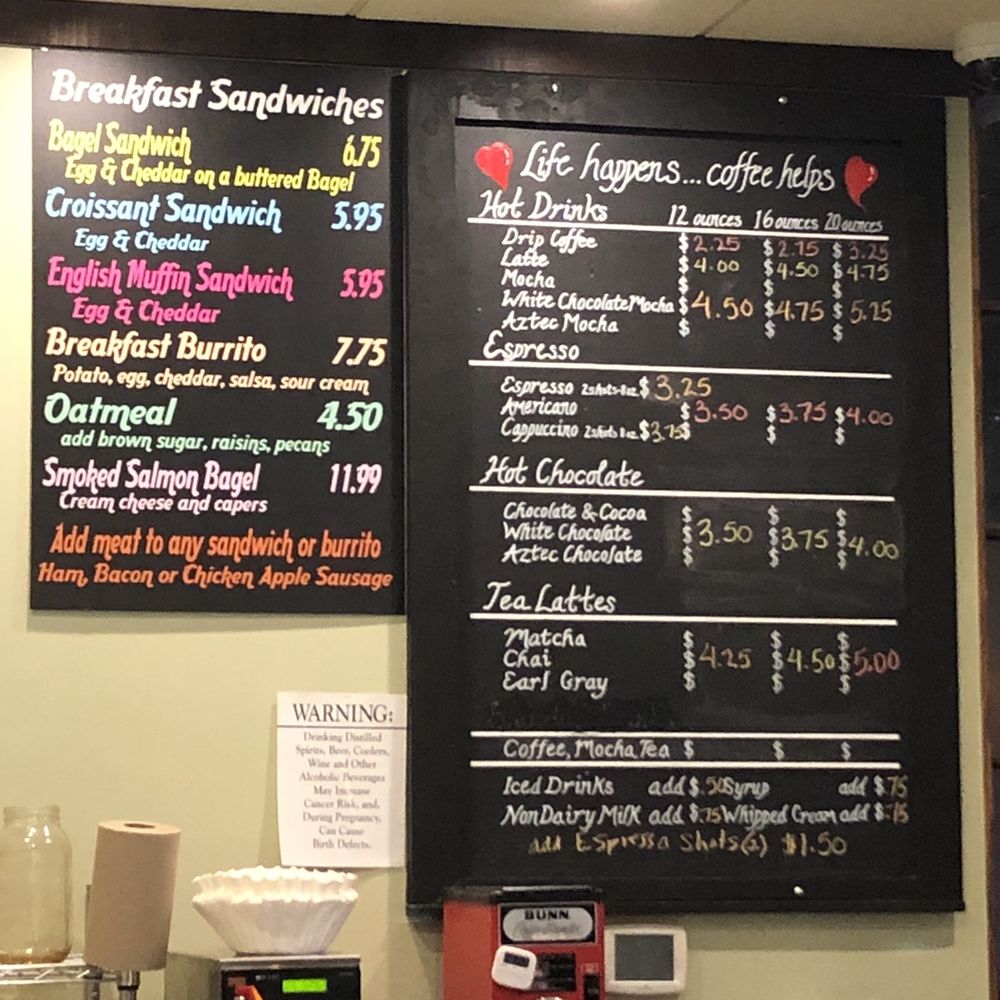 Breakfast Sandwiches
Bagel Sandwich 6.75
Egg & Cheddar on a buttered Bagel
Croissant Sandwich 5.95
Egg & Cheddar
English Muffin Sandwich 5.95
Egg & Cheddar
Breakfast Burrito 7.75
Potato, egg, cheddar, salsa, sour cream
Oatmeal 4.50
add brown sugar, raisins, pecans
Smoked Salmon Bagel 11.99
Cream cheese and capers
Add meat to any sandwich or burrito
Ham, Bacon or Chicken Apple Sausage
Life happens... coffee helps
Hot Drinks 12 ounces 16 ounces 20 ounces
Drip Coffee $2.25 $2.75 $3.25
Latte $4.00 $4.50 $4.75
Mocha $ $ $
White Chocolate Mocha $4.50 $4.75 $5.25
Aztec Mocha $ $ $
Espresso
Espresso 2shots-8oz $3.25
Americano $3.50 $3.75 $4.00
Cappuccino 2shots 8oz $3.75 $ $ $
Hot Chocolate
Chocolate & Cocoa $ $ $
White Chocolate $3.50 $3.75 $4.00
Aztec Chocolate $ $ $
Tea Lattes
Matcha $ $ $
Chai $4.25 $4.50 $5.00
Earl Gray $ $ $
Coffee, Mocha, Tea $ $ $
Iced Drinks add $.50 Syrup add $.75
NonDairy Milk add $.75 Whipped Cream add $.75
add Espressa Shots(2) $1.50
WARNING:
Drinking Distilled
Spirits, Beer, Coolers,
Wine and Other
Alcoholic Beverages
May Increase
Cancer Risk, and,
During Pregnancy,
Can Cause
Birth Defects.
BUNN